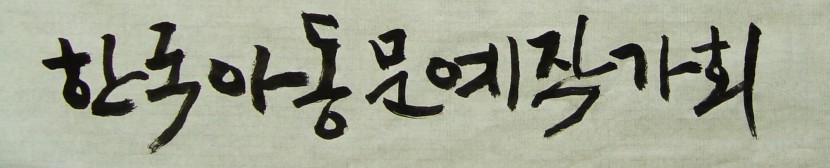 한국아동문예작가회